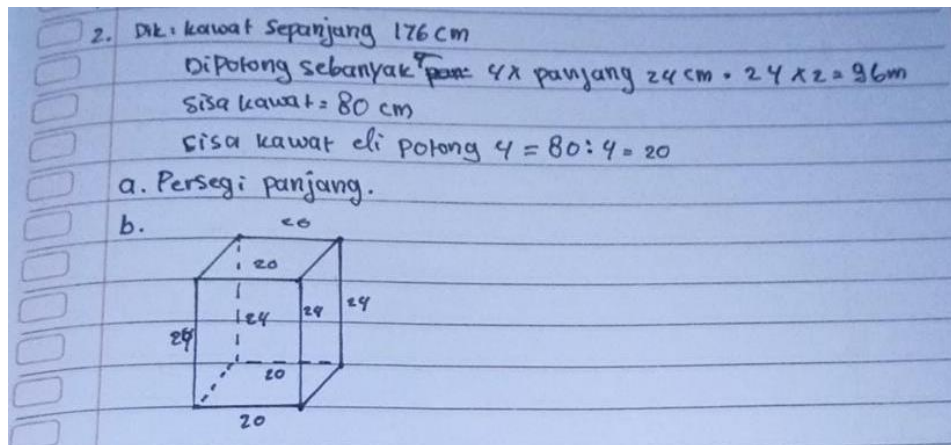 2. Dik: kawat Sepanjang 176 cm
Dipotong sebanyak 4x panjang 24 cm = 24 x 2 = 96m
Sisa kawat = 80 cm
Sisa kawat di potong 4 = 80 : 4 = 20
a. Persegi panjang.
b.
20
20
24
24
24
24
20
20